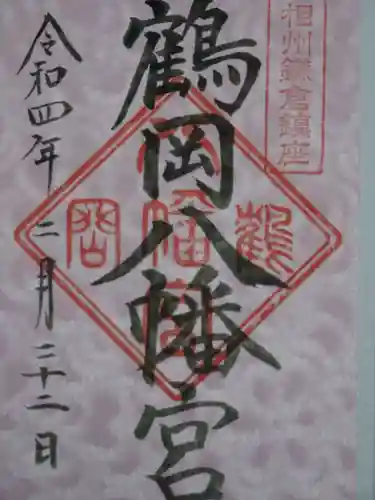 相州鎌倉鎮座
鶴岡八幡宮
令和四年二月二十二日